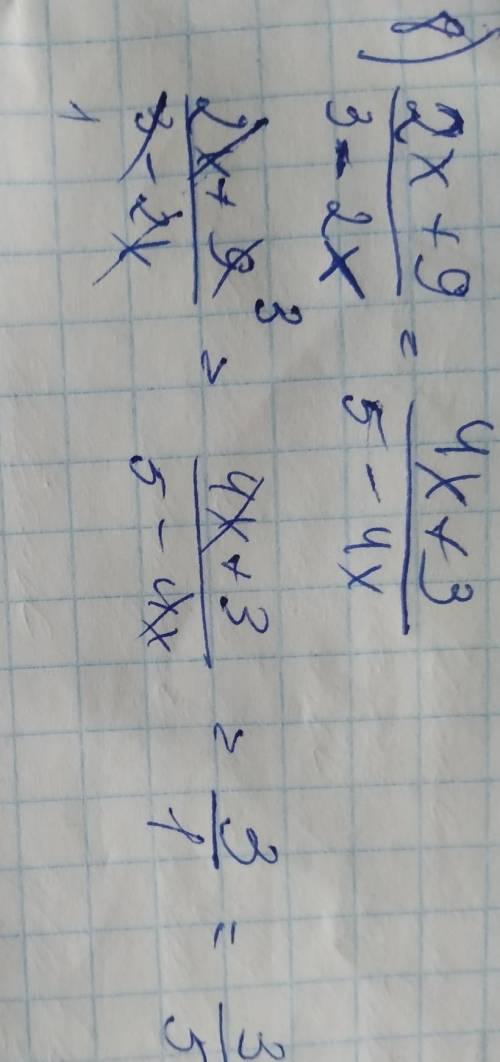 8) (2x + 9)/(3 - 2x) = (4x + 3)/(5 - 4x)
(2x + 9 3)/(3 - 2x 1) = (4x + 3)/(5 - 4x) = 3/1 = 3/5